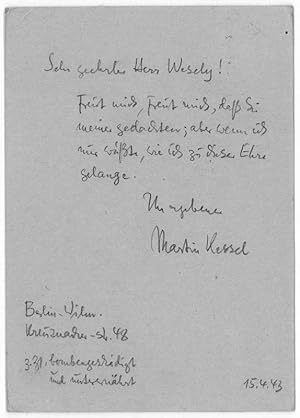 Sehr geehrter Herr Wesely!
Freut mich, freut mich, daß Sie
meiner gedachten; aber wenn ich
nur wüßte, wie ich zu dieser Ehre
gelange.
Ihr ergebener
Martin Kessel
Berlin-Wilm.
Kreuznacher-str. 48
z. Zt. bombengeschädigt
und unterernährt
15.4.43